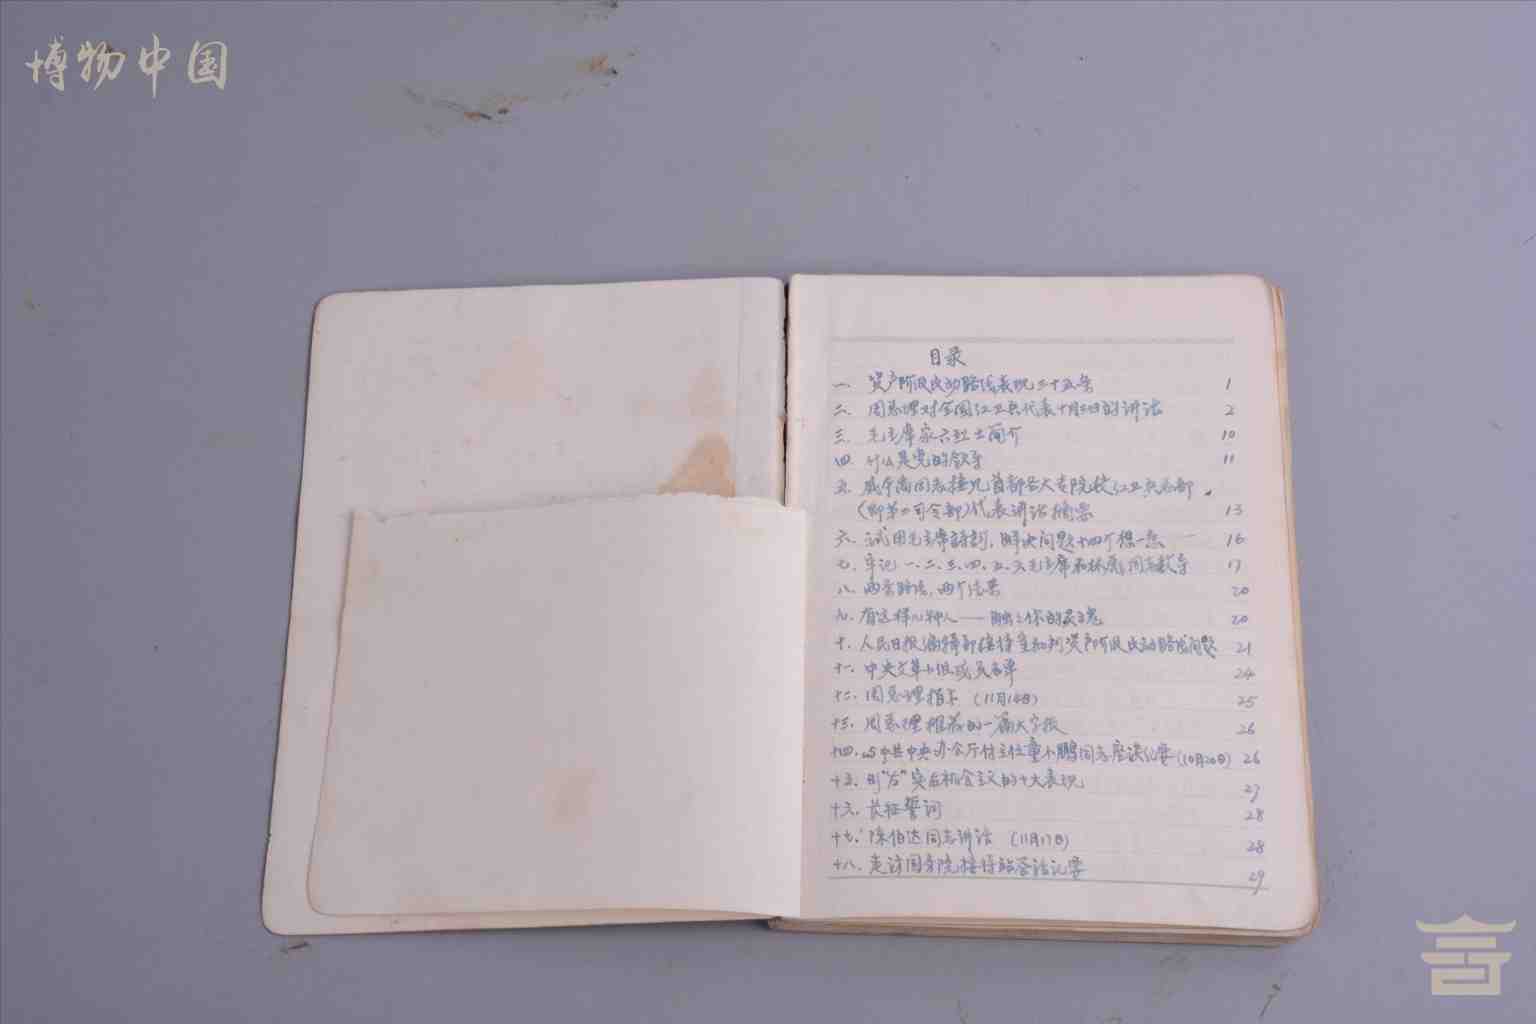 博物中国
目录
一. 资产阶级反动路线表现三十五条 1
二. 周总理对全国红卫兵代表十月三日的讲话 2
三. 毛主席家六烈士简介 10
四. 什么是党的领导 11
五. 戚本禹同志接见首都各大专院校红卫兵总部
(即第二司令部)代表讲话摘要 13
六. 试用毛主席诗词, 解决问题十四个想一想 16
七. 牢记一.二.三.四.五.六毛主席和林彪同志教导 17
八. 两条路线, 两个结果 20
九. 有这样几种人——触触你的灵魂 20
十. 人民日报编辑部接待室和判资产阶级反动路线问题 21
十一. 中央文革小组成员名单 24
十二. 周总理指示 (11月14日) 25
十三. 周总理推荐的一篇大字报 26
十四. 与中共中央办公厅付主任童小鹏同志座谈纪要(10月20日) 26
十五. 形"左"实右机会主义的十大表现 27
十六. 长征誓词 28
十七. 陈伯达同志讲话 (11月17日) 28
十八. 走访国务院接待站答话记要 29